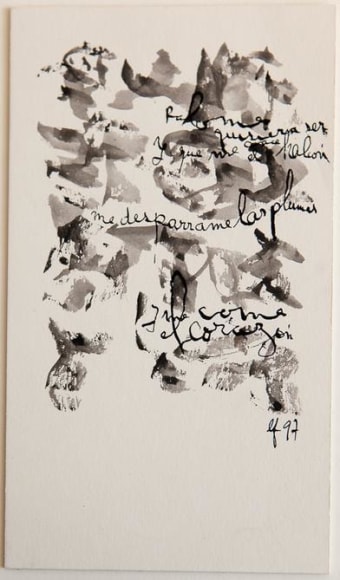 Paloma
quisiera ser
y que me coma el halcón
me desparrame las plumas
y me coma
el corazón
lf 97